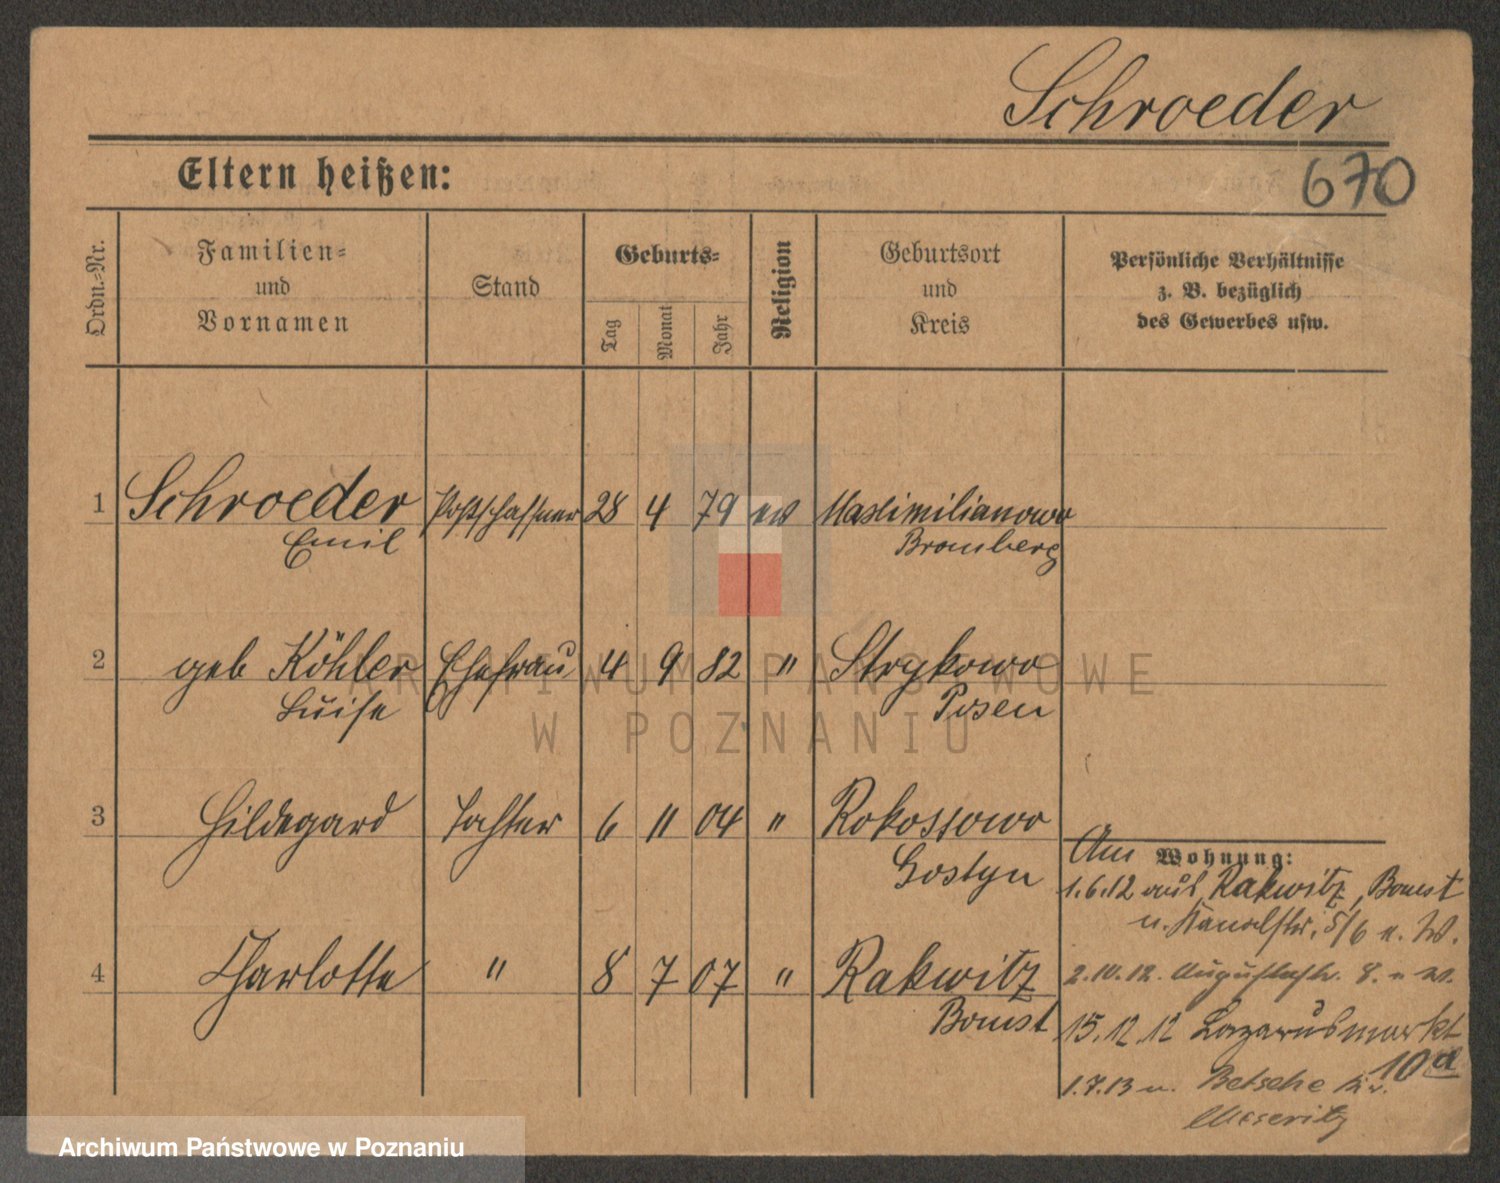 Schroeder
Eltern heißen:
670
Ordn.-Nr.
Familien-
und
Vornamen
Stand
Geburts-
Tag
Monat
Jahr
Religion
Geburtsort
und
Kreis
Persönliche Verhältnisse
z. B. bezüglich
des Gewerbes usw.
1 Schroeder Postschaffner 28 4 79 ev Maximilianowo
Emil Bromberg
2 geb Köhler Ehefrau 4 9 82 " Strykowo
Luise Posen
3 Hildegard Tochter 6 11 04 " Rokossowo
Gostyn
4 Charlotte " 8 7 07 " Rakwitz
Bomst
Am Wohnung:
1.6.12 aus Rakwitz, Bomst
n. Kanalstr. 5/6 n. W.
2.10.12. Augustastr. 8. n W.
15.12.12 Lazarusmarkt
10a
1.7.13 n. Betsche Kr.
Meseritz
ARCHIWUM PAŃSTWOWE
W POZNANIU
Archiwum Państwowe w Poznaniu